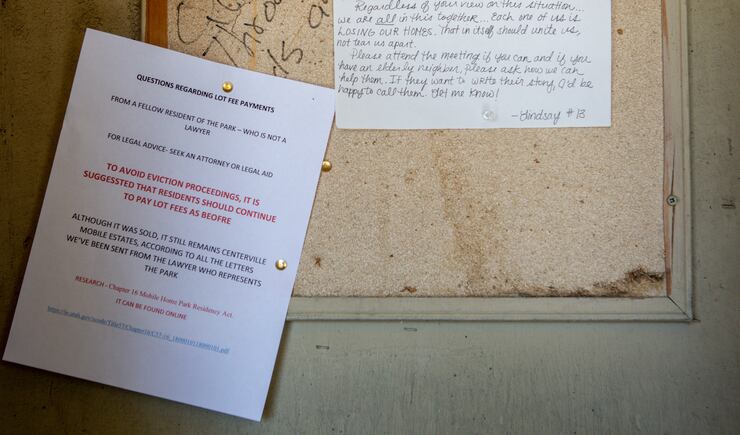 QUESTIONS REGARDING LOT FEE PAYMENTS
FROM A FELLOW RESIDENT OF THE PARK – WHO IS NOT A
LAWYER
FOR LEGAL ADVICE- SEEK AN ATTORNEY OR LEGAL AID
TO AVOID EVICTION PROCEEDINGS, IT IS
SUGGESSTED THAT RESIDENTS SHOULD CONTINUE
TO PAY LOT FEES AS BEOFRE
ALTHOUGH IT WAS SOLD, IT STILL REMAINS CENTERVILLE
MOBILE ESTATES, ACCORDING TO ALL THE LETTERS
WE'VE BEEN SENT FROM THE LAWYER WHO REPRESENTS
THE PARK
RESEARCH – Chapter 16 Mobile Home Park Residency Act.
IT CAN BE FOUND ONLINE
Regardless of your view on this situation...
we are all in this together... Each one of us is
LOSING OUR HOMES. That in itself should unite us,
not tear us apart.
Please attend the meeting if you can and if you
have an elderly neighbor, please ask how we can
help them. If they want to write their story, I'd be
happy to call them. Let me know!
- Lindsay #13